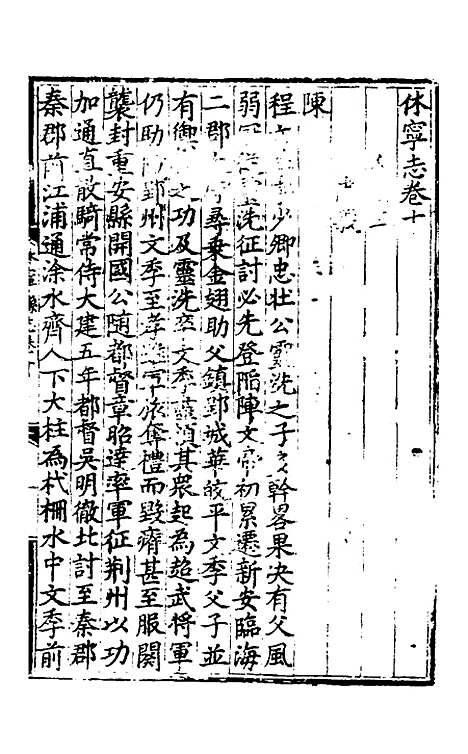 休寧志卷十
陳
程少卿忠壯公靈洗之子幹畧果决有父風
弱洗征討必先登陷陣文帝初累遷新安臨海
二郡尋乗金翅助父鎮郢城華皎平文季父子並
有之功及靈洗卒文季其衆起為超武將軍
仍助郢州文季至孝雖軍旅奪禮而毀瘠甚至服闋
襲封重安縣開國公随都督章昭達率軍征荆州以功
加通直散騎常侍大建五年都督吳明徹北討至秦郡
秦郡前江浦通涂水齊人下大柱為杙柵水中文季前